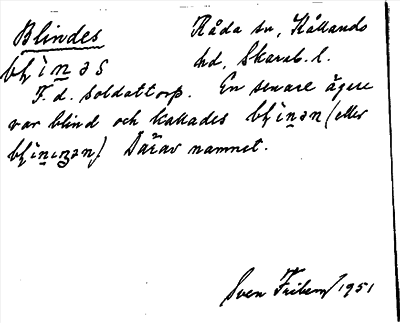 Blindes
Råda sn, Kållands
hd, Skarab. l.
F. d. soldattorp. En senare ägare
var blind och kallades (eller
Därav namnet.
Sven Friberg 1951